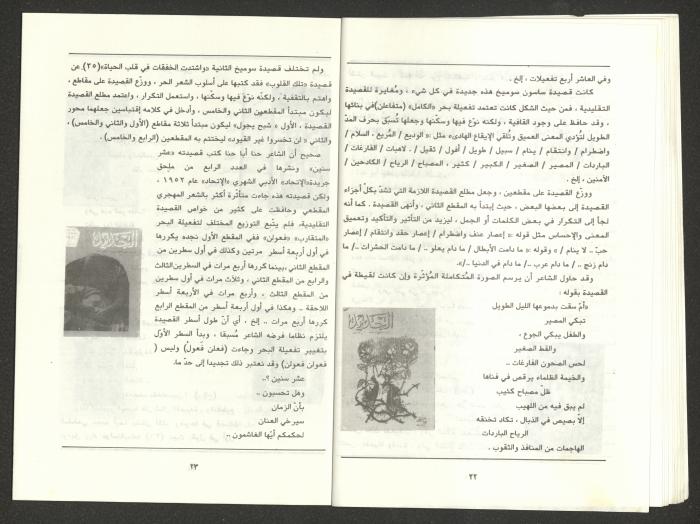 وفي العاشر أربع تفعيلات ، إلخ .
كانت قصيدة ساسون سوميخ هذه جديدة في كل شيء ، ومُغايرة للقصيدة
التقليدية ، فمن حيث الشكل كانت تعتمد تفعيلة بحر «الكامل» (متفاعلن)في بنائها
، وقد حافظ على وجود القافية ، ولكنه نوع فيها وسكّنها وجعلها تُسبَق بحرف المدّ
الطويل لتُؤدي المعنى العميق وتُلقي الإيقاع الهادىء مثل : «الوديع / المُريع ، السلام /
واضطرام / وانتقام / ينام / سبيل / طويل / أفول / ثقيل / .. لاهبات / الفارغات /
الباردات / المصير / الصغير / الكبير / كثير ، المصباح / الرياح / الكادحين /
الأمنين ، إلخ .
ووزّع القصيدة على مقطعين ، وجعل مطلع القصيدة اللازمة التي تشدّ بكلّ أجزاء
القصيدة إلى بعضها البعض ، حيث إبتدأ به المقطع الثاني ، وأنهى القصيدة . كما أنه
لجأ إلى التكرار في بعض الكلمات أو الجمل ، ليزيد من التأثير والتأكيد وتعميق
المعنى والإحساس مثل قوله :« إعصار عنف واضطرام / إعصار حقد وانتقام / إعصار
حبّ .. لا ينام / » وقوله :« ما دامت الأبطال / ما دام يعلو .. / ما دامت الحشرات .. / ما
دام زنج .. / ما دام عرب .. / ما دام في الدنيا .. /».
وقد حاول الشاعر أن يرسم الصورة المُتكاملة المُؤثّرة وإن كانت لقيطة في
القصيدة بقوله :
«أمّ سقت بدموعها الليل الطويل
تبكي المصير
والطفل يبكي الجوع .
والقط الصغير
لحس الصحون الفارغات ..
والخيمة الظلماء يرقص في فناها
ظلّ مصباح كئيب
لم يبق فيه من اللهيب
إلاّ بصيص في الذبال ، تكاد تخنقه
الرياح الباردات
الهاجمات من المنافذ والثقوب .
٢٢
ولم تختلف قصيدة سوميخ الثانية «واشتدت الخفقات في قلب الحياة»(٢٥) عن
قصيدة «تلك القلوب» فقد كتبها على أسلوب الشعر الحر ، ووزّع القصيدة على مقاطع ،
واهتم بالتقفية . ولكنّه نوّع فيها وسكّنها ، واستعمل التكرار ، واعتمد مطلع القصيدة
ليكون مبتدأ المقطعين الثاني والخامس ، وأدخل في كلامه إقتباسين جعلهما محور
القصيدة ، الأول « شبح يجول» ليكون مبتدأ ثلاثة مقاطع (الأول والثاني والخامس) ،
والثاني « لن تخسروا غير القيود» ليختتم به المقطعين (الرابع والخامس) .
صحيح أن الشاعر حنا أبا حنا كتب قصيدته «عشر
سنين» ونشرها في العدد الرابع من ملحق
جريدة«الإتحاد» الأدبي الشهري «الإتحاد» عام ١٩٥٢ ،
ولكن قصيدته هذه جاءت متأثرة أكثر بالشعر المهجري
المقطعي وحافظت على كثير من خواص القصيدة
التقليدية، فلم يتبع التوزيع المختلف لتفعيلة البحر
«المتقارب» «فعولن» ففي المقطع الأول نجده يكررها
في أول أربعة أسطر مرتين وكذلك في أول سطرين من
المقطع الثاني ،بينما كررها أربع مرات في السطرين الثالث
والرابع من المقطع الثاني ، وثلاث مرات في أول سطرين
من المقطع الثالث ، وأربع مرات في الأربعة أسطر
اللاحقة .. وهكذا في أول أربعة أسطر من المقطع الرابع
كررها أربع مرات .. إلخ ، أي أنّ طول أسطر القصيدة
يلتزم نظاما فرضه الشاعر مُسبقا ، وبدأ السطر الأوّل
بتغيير تفعيلة البحر وجاءت (فعلن فعولُ) وليس (
فعولن فعولن) وقد نعتبر ذلك تجديدا إلى حدّ ما.
عشر سنين ؟..
وهل تحسبون ..
بأنّ الزمان
سيرخي العنان
لحكمكم أيّها الغاشمون ..
٢٣
الجديد
الجديد